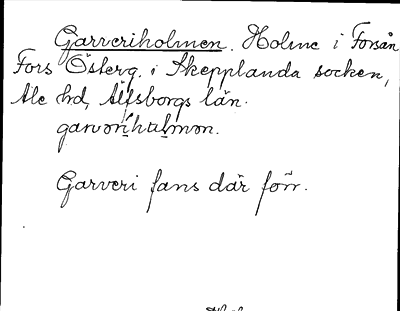 Garveriholmen. Holme i Forsån
Fors Österg. i Skepplanda socken,
Ale hd, Älfsborgs län.
garvəri̱halmən.
Garveri fans där förr.